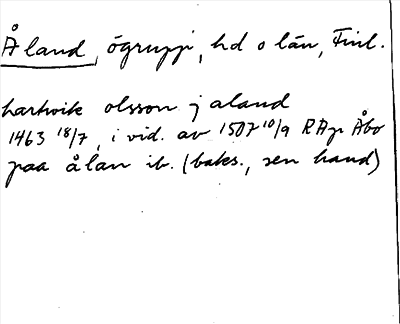 Åland, ögrupp, hd o län, Finl.
hartvik olsson j aland
1463 18/7, i vid. av 1507 10/9 RAp Åbo
paa åland ib. (baks., sen hand)